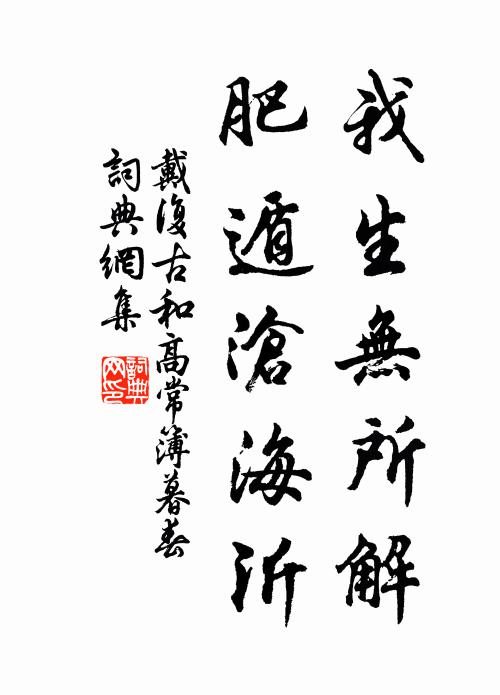 我生無所解
肥遁滄海沂
戴復古和高常簿暮春
詞典網集
詞典網印